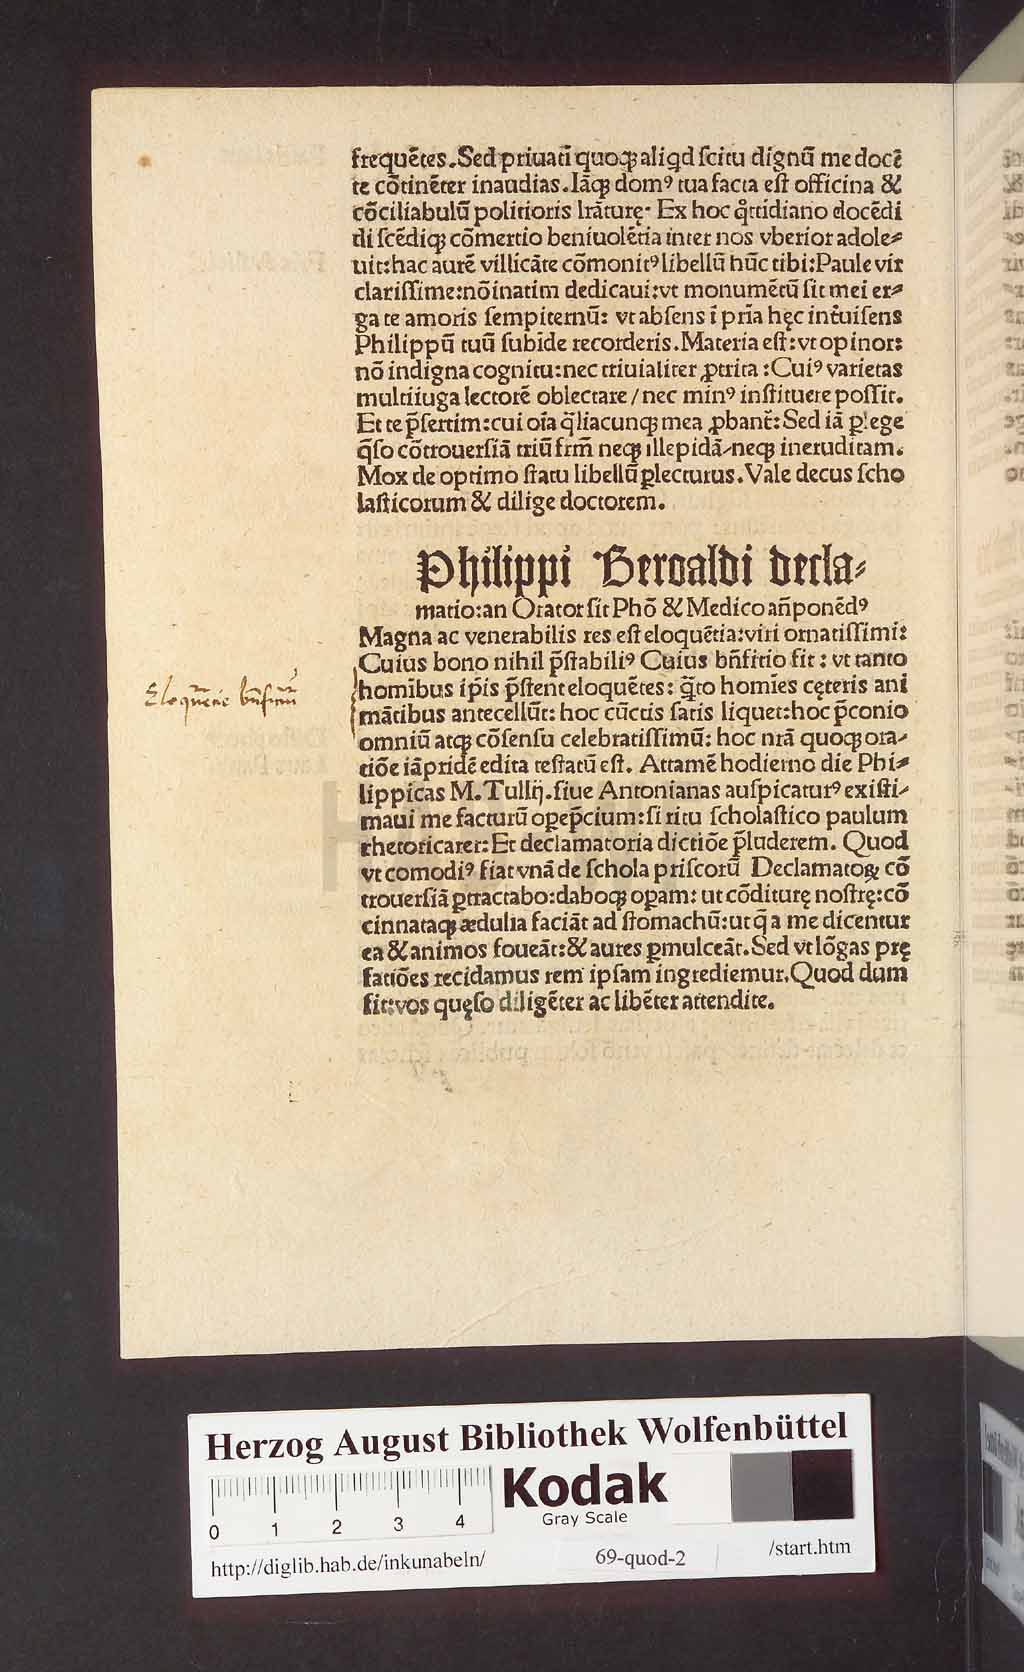 frequētes. Sed priuatī quoqꝫ aliqd scitu dignū me docē
te cōtinēter inaudias. Iāqꝫ domꝰ tua facta est officina &
cōciliabulū politioris lrāturę. Ex hoc qͦttidiano docēdi
di scēdiqꝫ cōmertio beniuolētia inter nos vberior adole⸗
uit: hac autē villicāte cōmonitꝰ libellū hūc tibi: Paule vir
clarissime: nōinatim dedicaui: vt monumētū sit mei er⸗
ga te amoris sempiternū: vt absens ī pria hęc intuisens
Philippū tuū subide recorderis. Materia est: vt opinor:
nō indigna cognitu: nec triuialiter ꝓtrita: Cuiꝰ varietas
multiiuga lectorē oblectare / nec minꝰ instituere possit.
Et te p̄sertim: cui oīa q̄liacunqꝫ mea ꝓbant̄: Sed iā ꝑlege
q̄so cōtrouersiā triū frm̄ neqꝫ illepidā⸗neqꝫ ineruditam.
Mox de optimo statu libellū ꝑlecturus. Vale decus scho
lasticorum & dilige doctorem.
Philippi Beroaldi decla⸗
matio: an Orator sit Phō & Medico añponēdꝰ
Magna ac venerabilis res est eloquētia: viri ornatissimi:
Cuius bono nihil p̄stabiliꝰ Cuius bn̄fitio fit: vt tanto
homībus ip̄is p̄stent eloquētes: q̄to homīes cęteris ani
mātibus antecellūt: hoc cūctis satis liquet: hoc p̄conio
omniū atqꝫ cōsensu celebratissimū: hoc nrā quoqꝫ ora⸗
tiōe iāpridē edita testatū est. Attamē hodierno die Phi⸗
lippicas M. Tullij. siue Antonianas auspicaturꝰ existi⸗
maui me facturū oꝑep̄cium: si ritu scholastico paulum
rhetoricarer: Et declamatoria dictiōe p̄luderem. Quod
vt comodiꝰ fiat vnā de schola priscorū Declamatoꝝ cō
trouersiā ꝑtractabo: daboqꝫ oꝑam: ut cōditurę nostrę: cō
cinnataqꝫ ædulia faciāt ad stomachū: ut q̄ a me dicentur
ea & animos foueāt: & aures ꝑmulceāt. Sed vt lōgas prę
fatiōes recidamus rem ipsam ingrediemur. Quod dum
fit: vos quęso diligēter ac libēter attendite.
Eloquentie bn̄ficium
Herzog August Bibliothek Wolfenbüttel
0 1 2 3 4
Kodak
Gray Scale
http://diglib.hab.de/inkunabeln/ 69-quod-2 /start.htm